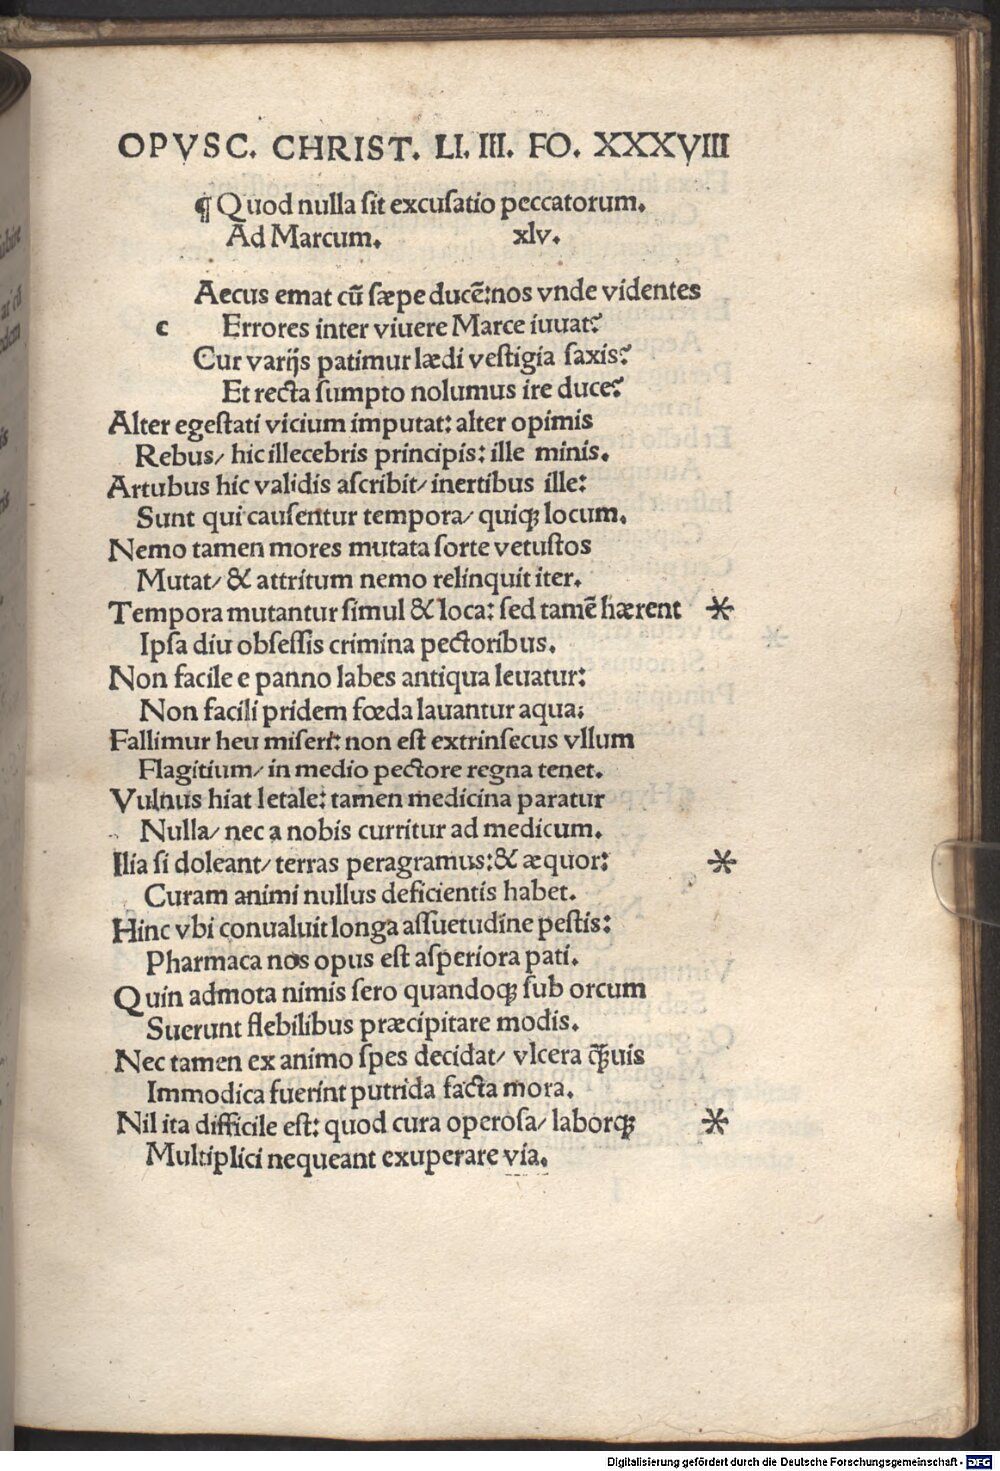 OPVSC. CHRIST. LI. III. FO. XXXVIII
¶ Quod nulla sit excusatio peccatorum.
Ad Marcum. xlv.
Aecus emat cũ sæpe ducẽ: nos vnde videntes
c Errores inter viuere Marce iuuat?
Cur varijs patimur lædi vestigia saxis?
Et recta sumpto nolumus ire duce?
Alter egestati vicium imputat: alter opimis
Rebus/ hic illecebris principis: ille minis.
Artubus hic validis ascribit/ inertibus ille:
Sunt qui causentur tempora/ quiqꝫ locum.
Nemo tamen mores mutata sorte vetustos
Mutat/ & attritum nemo relinquit iter.
Tempora mutantur simul & loca: sed tamẽ hærent *
Ipsa diu obsessis crimina pectoribus.
Non facile e panno labes antiqua leuatur:
Non facili pridem fœda lauantur aqua:
Fallimur heu miseri: non est extrinsecus vllum
Flagitium/ in medio pectore regna tenet.
Vulnus hiat letale: tamen medicina paratur
Nulla/ nec a nobis curritur ad medicum.
Ilia si doleant/ terras peragramus: & æquor: *
Curam animi nullus deficientis habet.
Hinc vbi conualuit longa assuetudine pestis:
Pharmaca nos opus est asperiora pati.
Quin admota nimis sero quandoqꝫ sub orcum
Suerunt flebilibus præcipitare modis.
Nec tamen ex animo spes decidat/ vlcera q̃ꝫuis
Immodica fuerint putrida facta mora.
Nil ita difficile est: quod cura operosa/ laborqꝫ *
Multiplici nequeant exuperare via.
Digitalisierung gefördert durch die Deutsche Forschungsgemeinschaft - DFG